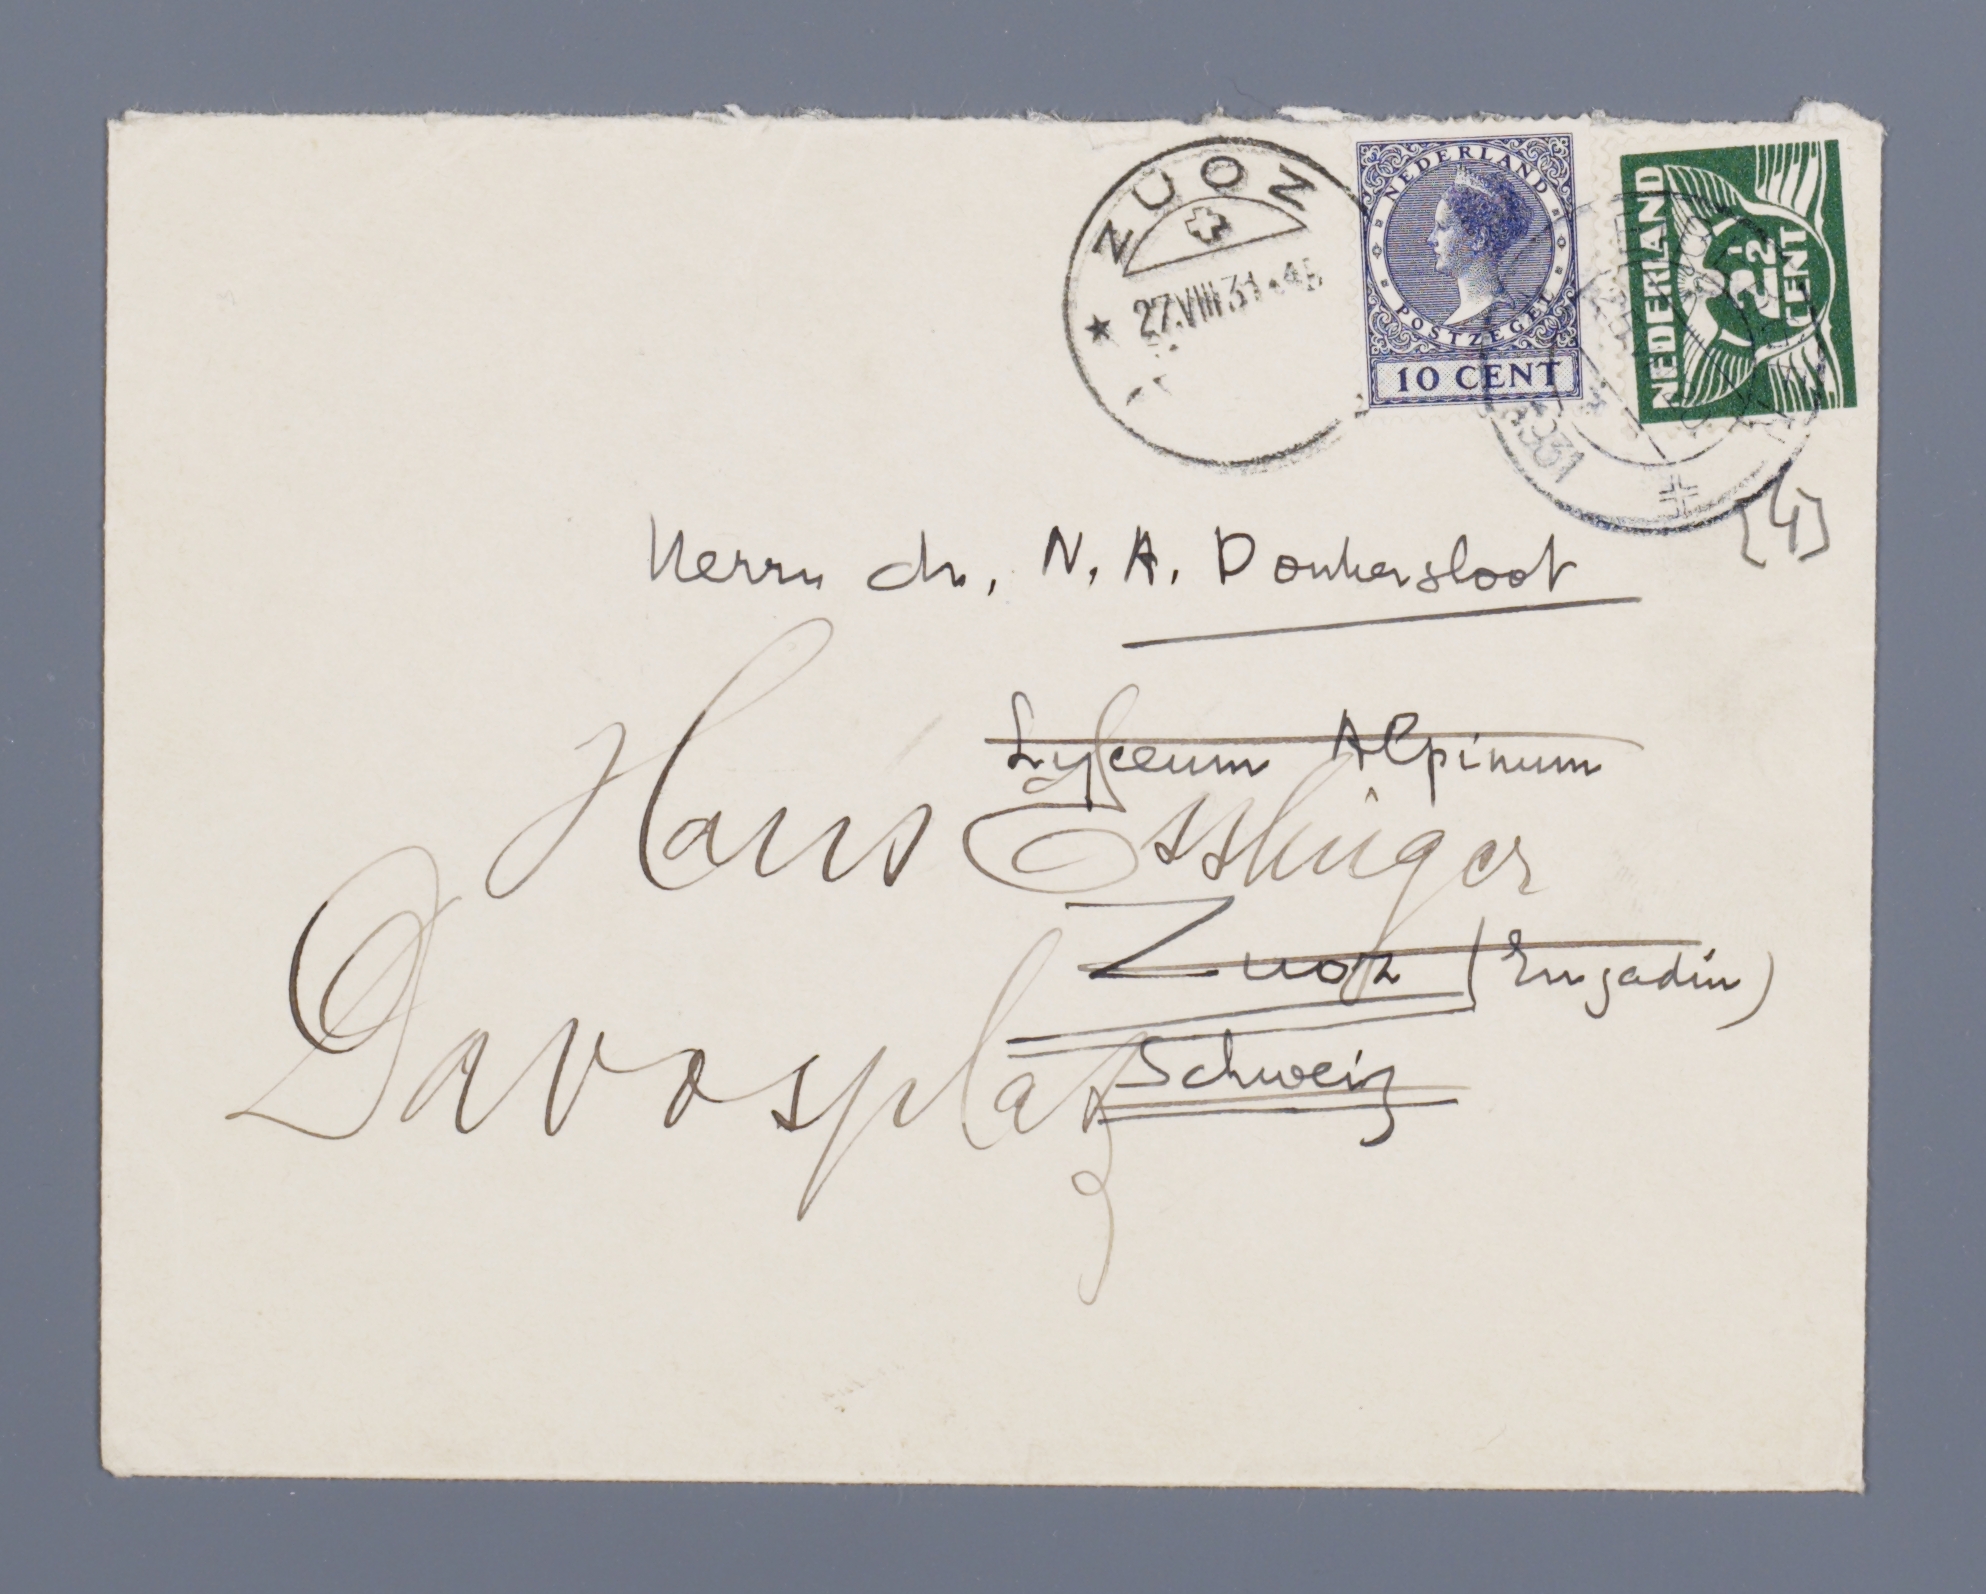 ZUOZ
27.VIII.31
NEDERLAND
POSTZEGEL
10 CENT
NEDERLAND
2½
CENT
1931
[4]
Herrn dr. N. A. Donkersloot
Lyceum Alpinum
Haus Esslinger
Zuoz (Engadin)
Schweiz
Davosplatz